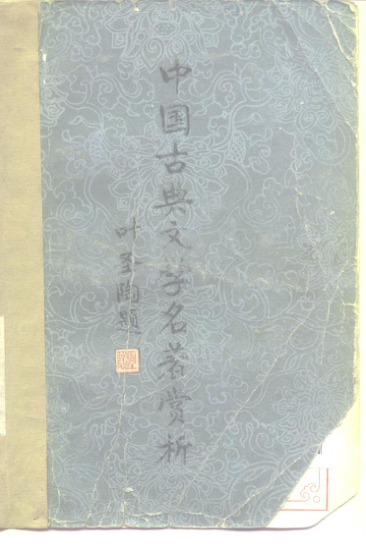 中国古典文学名著赏析
叶圣陶题